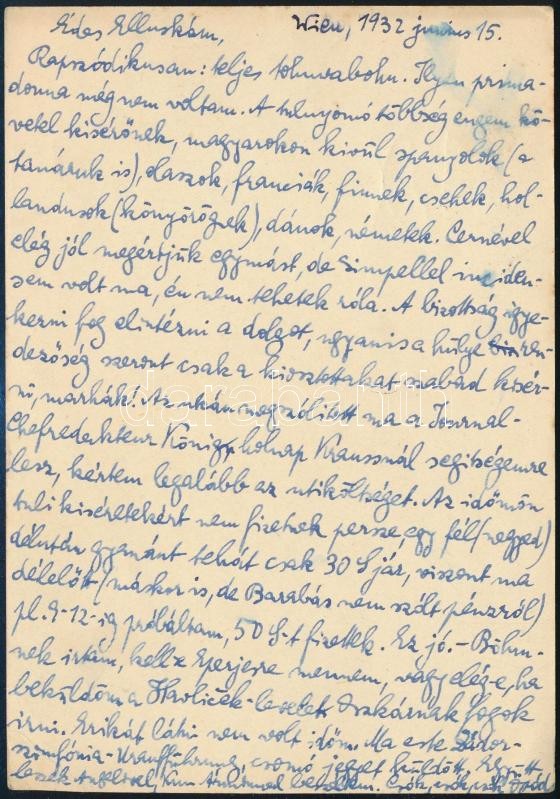 Édes Elluskám, Wien, 1932 június 15.
Rapszódikusan: teljes tohuvabohu. Ilyen prima-
donna még nem voltam. A túlnyomó többség engem kö-
vetel kisérőnek, magyarokon kivül spanyolok (a
tanáruk is), olaszok, franciák, finnek, csehek, hol-
landusok (könyörögnek), dánok, németek. Cernével
elég jól megértjük egymást, de Simpellel inciden-
sem volt ma, én nem tehetek róla. A bizottság igye-
kezni fog elintézni a dolgot, ugyanis a hülye ren-
dezőség szerint csak a kiosztottakat szabad kisér-
ni, marhák! Azután megszólitott ma a Journal-
Chefredakteur König, holnap Kraussnál segitségemre
lesz, kértem legalább az utiköltséget. Az időmön
tuli kiséretekért nem fizetnek persze, egy fél (negyed)
délután gyanánt tehát csak 30 S jár, viszont ma
délelőtt (máskor is, de Barabás nem szólt pénzről)
pl. 9-12-ig próbáltam, 50 S-t fizettek. Ez jó. – Böhm-
nek irtam, kell-e Eperjesre mennem, vagy elég-e, ha
beküldöm a Havliček-levelet. Oszkárnak fogok
irni. Erikát látni nem volt időm. Ma este
szimfónia-Uraufführung, csomó jegyet küldött. Együtt
leszek
darabanth